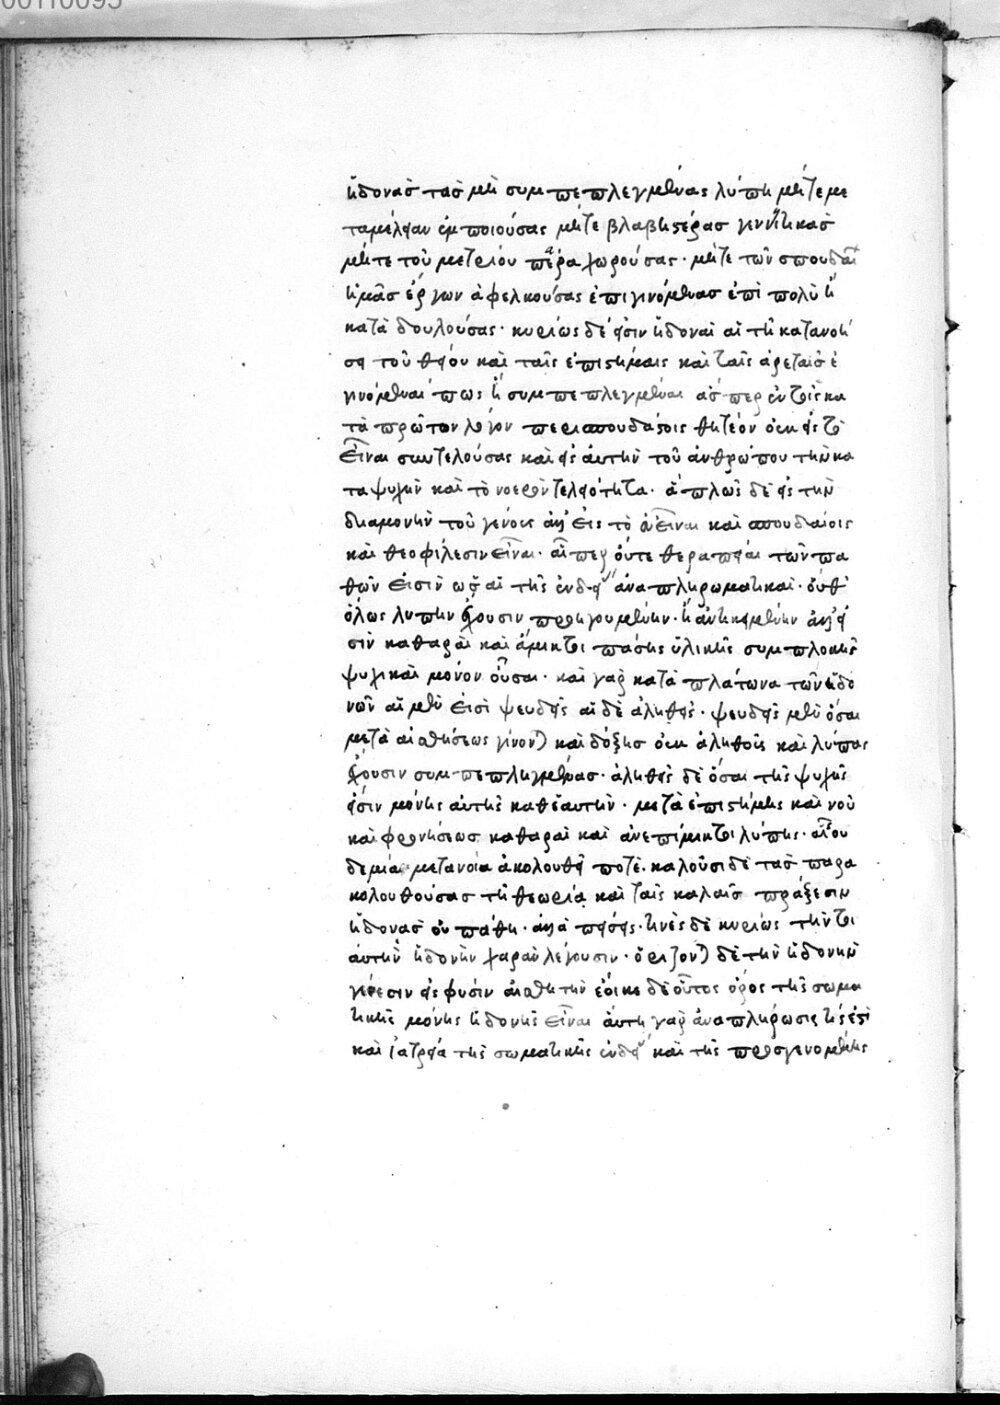 ἡδονὰσ τὰσ μὴ συμπεπλεγμένας λύπη μήτε με
ταμέλειαν ἐμποιούσας μήτε βλαβης ἑτέρασ γεννητικὰσ
μήτε τοῦ μετρίου πέρα χωρούσας· μήτε τῶν σπουδαί
ἡμᾶσ ἔργων ἀφελκούσας ἐπιγινόμενασ ἐπὶ πολὺ ἢ
καταδουλούσας· κυρίως δέ εἰσιν ἡδοναὶ αἱ τῆ κατανοή
σει τοῦ θείου καὶ ταῖς ἐπιστήμαις καὶ ταῖς ἀρεταῖσ ἐ
γινόμεναι πως ἢ συμπεπλεγμέναι ἁσ περ ἐν τοῖς κα
τὰ πρῶτον λόγον περισπουδάστοις θητέον οὐκ εἰς τὸ
εἶναι συντελούσας καὶ εἰς αὐτὴν τοῦ ἀνθρώπου τὴν κα
τα ψυχὴν καὶ τὸ νοερὸν τελειότητα· ἁπλῶς δὲ εἰς τὴν
διαμονὴν τοῦ γένους ἀλλ' εἰς τὸ εὖ εἶναι καὶ σπουδαίοις
καὶ θεοφίλεσιν εἶναι· αἵπερ οὔτε θεραπεῖαι τῶν πα
θῶν εἰσὶν ὡς αἱ τῆς ἐνδεί ἀναπληρωματικαὶ· οὔθ'
ὅλως λύπην ἔχουσιν προηγουμένην· ἢ ἀντικειμένην ἀλλ' εἰ
σὶν καθαραὶ καὶ ἄμικτοι πάσης ὑλικῆς συμπλοκῆς
ψυχικαὶ μόνον οὖσαι· καὶ γὰρ κατὰ πλάτωνα τῶν ἡδο
νῶν αἱ μὲν εἰσὶ ψευδεῖς αἱ δὲ ἀληθεῖς· ψευδεῖς μὲν ὅσαι
μετὰ αἰσθήσεως γίνον) καὶ δόξης οὐκ ἀληθοῦς καὶ λύπας
ἔχουσιν συμπεπληγμένασ· ἀληθεῖς δὲ ὅσαι τῆς ψυχῆς
εἰσιν μόνης αὐτῆς καθ' ἑαυτὴν· μετὰ ἐπιστήμης καὶ νοῦ
καὶ φρονήσεωσ καθαραὶ καὶ ἀνεπίμικτοι λύπης· αἷς οὐ
δεμία μετανοία ἀκολουθεῖ ποτέ· καλοῦσι δὲ τὰσ παρα
κολουθούσασ τῆ θεωρία καὶ ταῖς καλαῖσ πράξεσιν
ἡδονὰσ οὐ πάθη· ἀλλὰ πείσεις· τινὲς δὲ κυρίως τὴν τοι
αύτην ἡδονὴν χαρὰν λέγουσιν· ὁρίζον) δὲ τὴν ἡδονὴν
γένεσιν εἰς φύσιν αἰσθητήν ἔοικε δὲ οὗτος ὅρος τῆς σωμα
τικῆς μόνης ἡδονῆς εἶναι αὕτη γὰρ ἀναπλήρωσις τίς ἐστι
καὶ ἰατρεία τῆς σωματικῆς ἐνδεί καὶ τῆς προσγενομένης